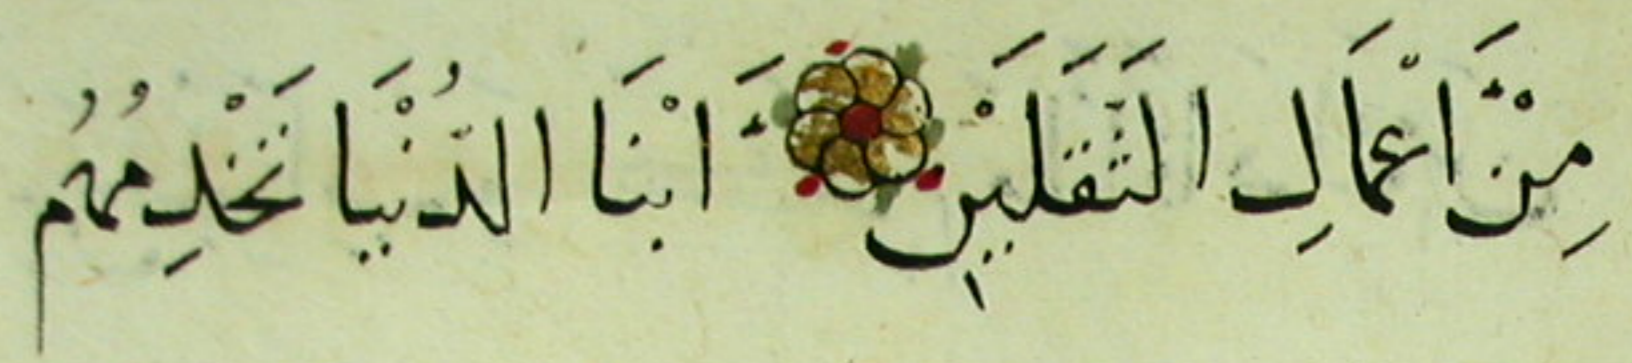 مِنْ اَعْمَالِ الثَّقَلَيْنِ اَبْنَا الدُّنْيَا تَخْدِمُهُمُ